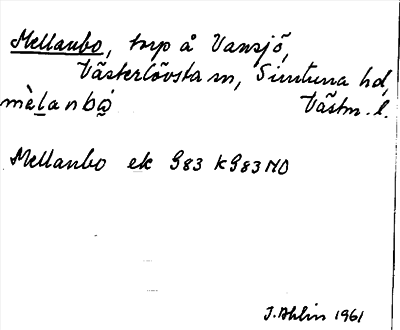 Mellanbo, torp å Vansjö,
Västerlövsta sn, Simtuna hd,
mèlanbò Västm. l.
Mellanbo ek 983 k983 NO
J. Ahlin 1961